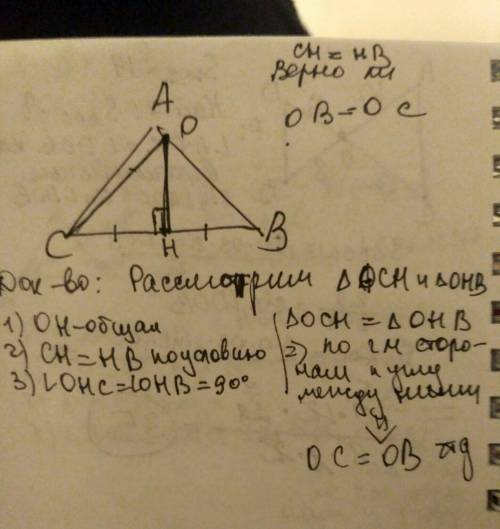 CH = HB
Верно ли
OB = OC
A
O
C
H
B
Док-во: Рассмотрим ΔOCH и ΔOHB
1) OH - общая
2) CH = HB по условию
3) ∠OHC = ∠OHB = 90°
ΔOCH = ΔOHB
по 2м сторо-
нам и углу
между ними
⇓
OC = OB чтд